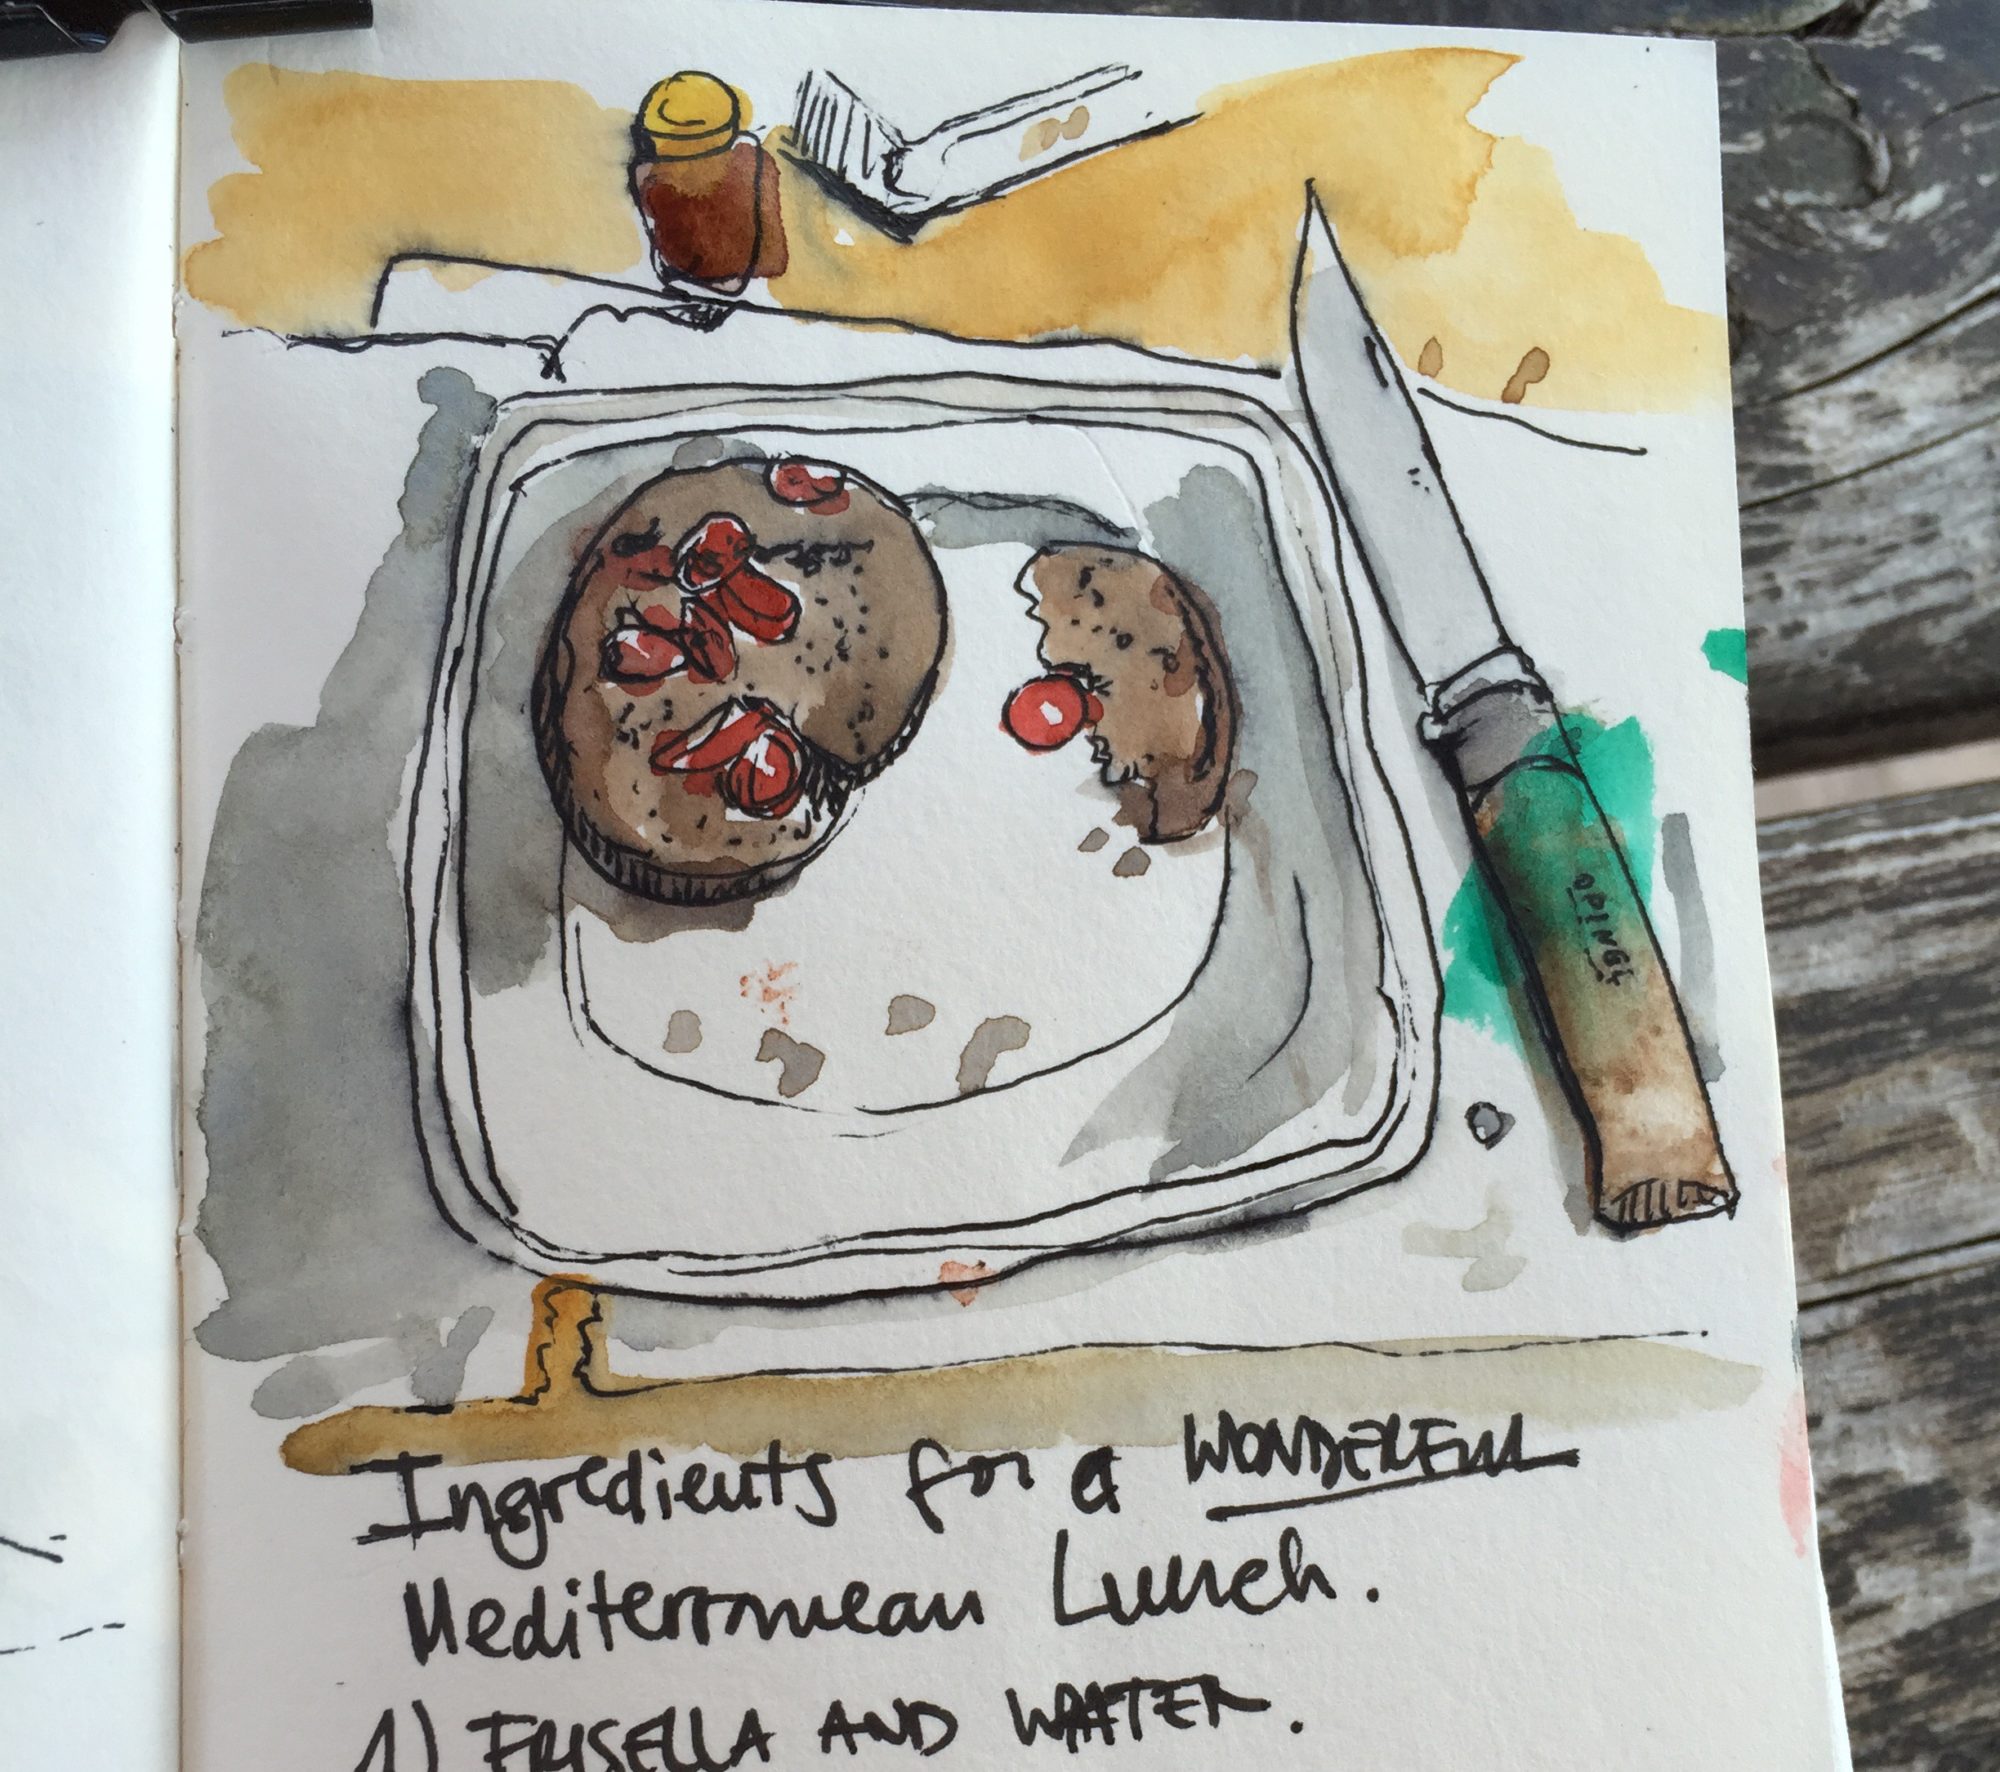 OPINEL
Ingredients for a WONDERFUL
Mediterranean Lunch.
1) FRISELLA AND WATER.